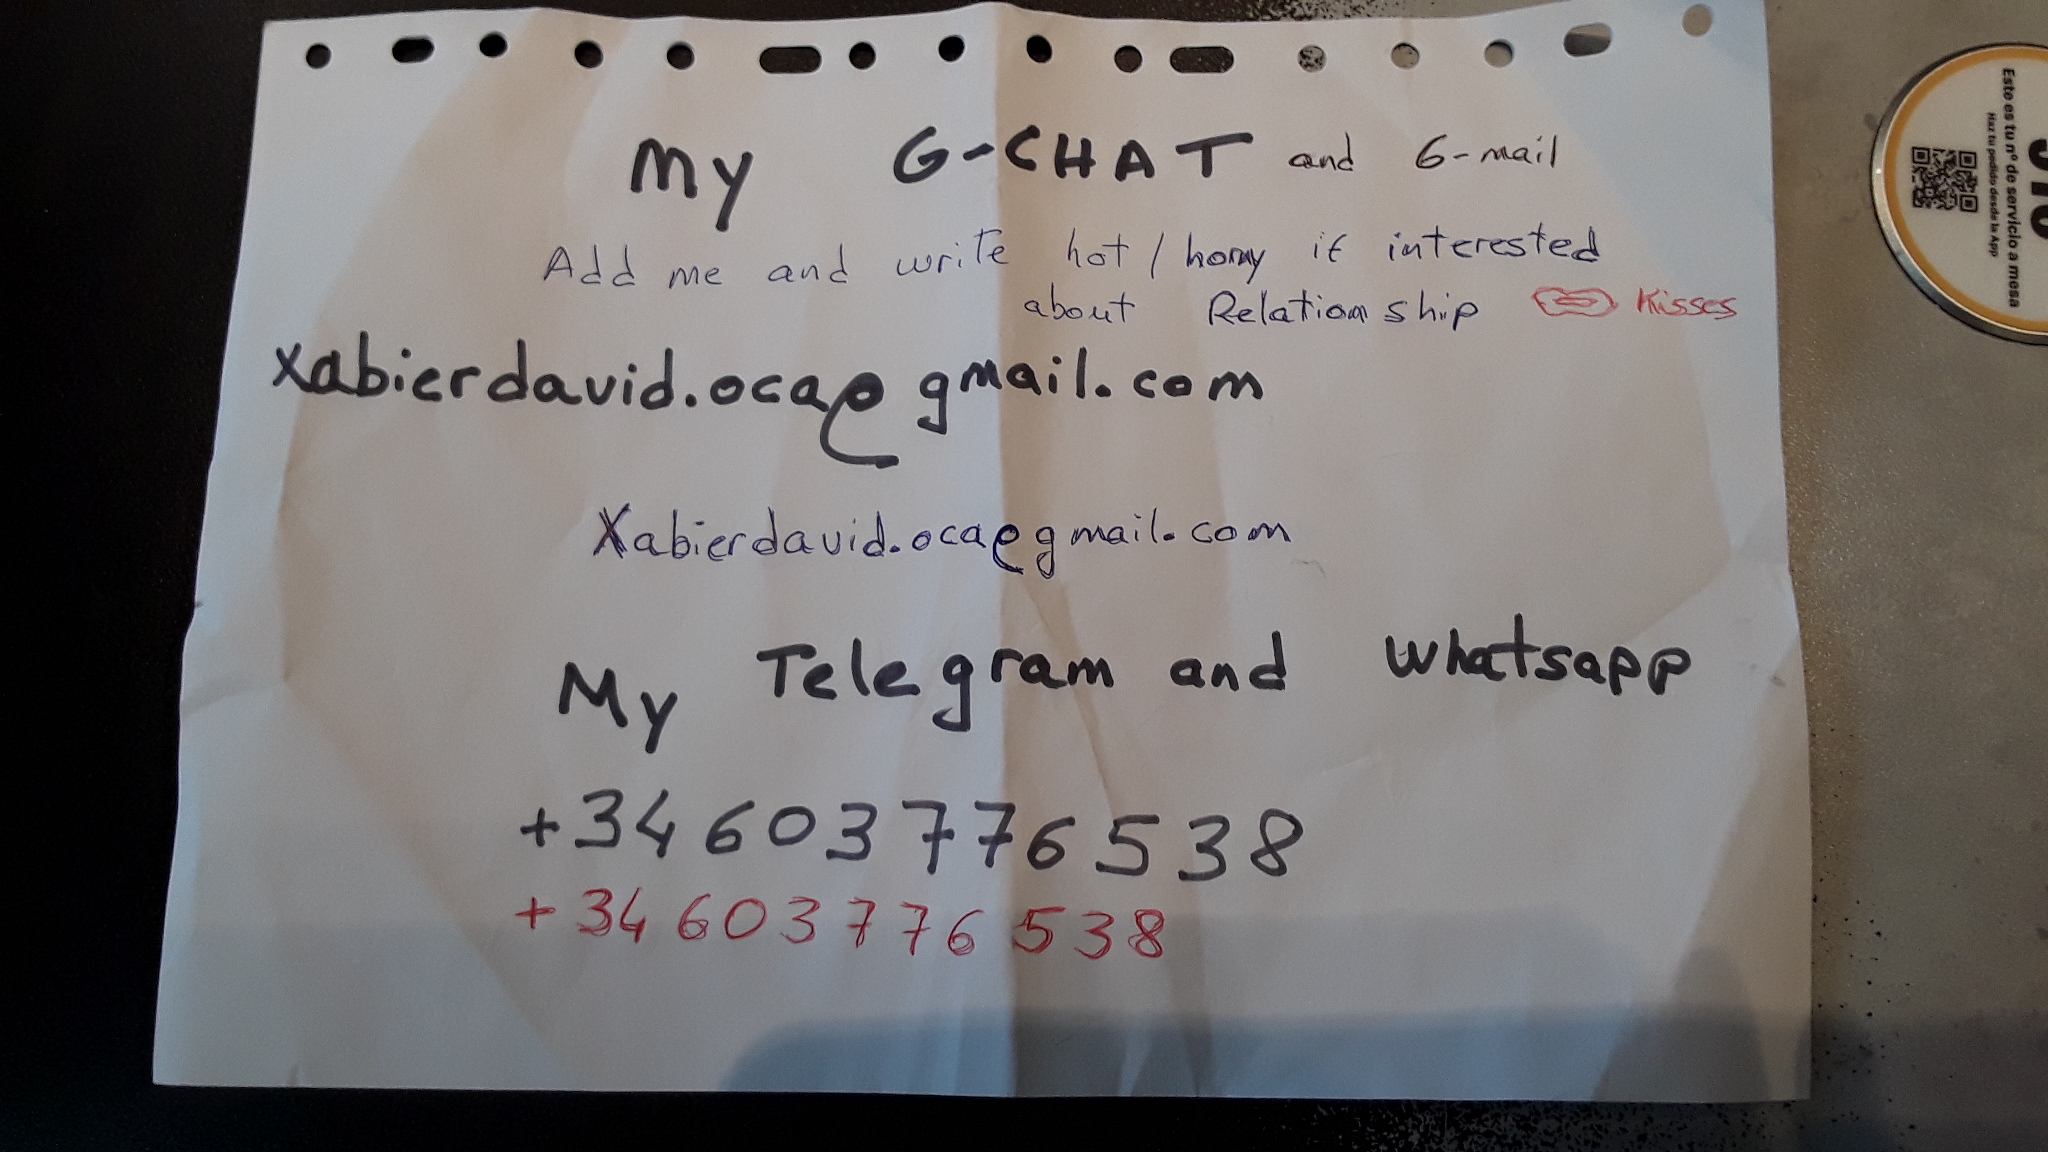 My G-CHAT and G-mail
Add me and write hot / horny if interested
about Relationship Kisses
xabierdavid.oca@gmail.com
Xabierdavid.oca@gmail.com
My Telegram and Whatsapp
+34 603776538
+34 603776538
Este es tu nº de servicio a mesa
Haz tu pedido desde la App